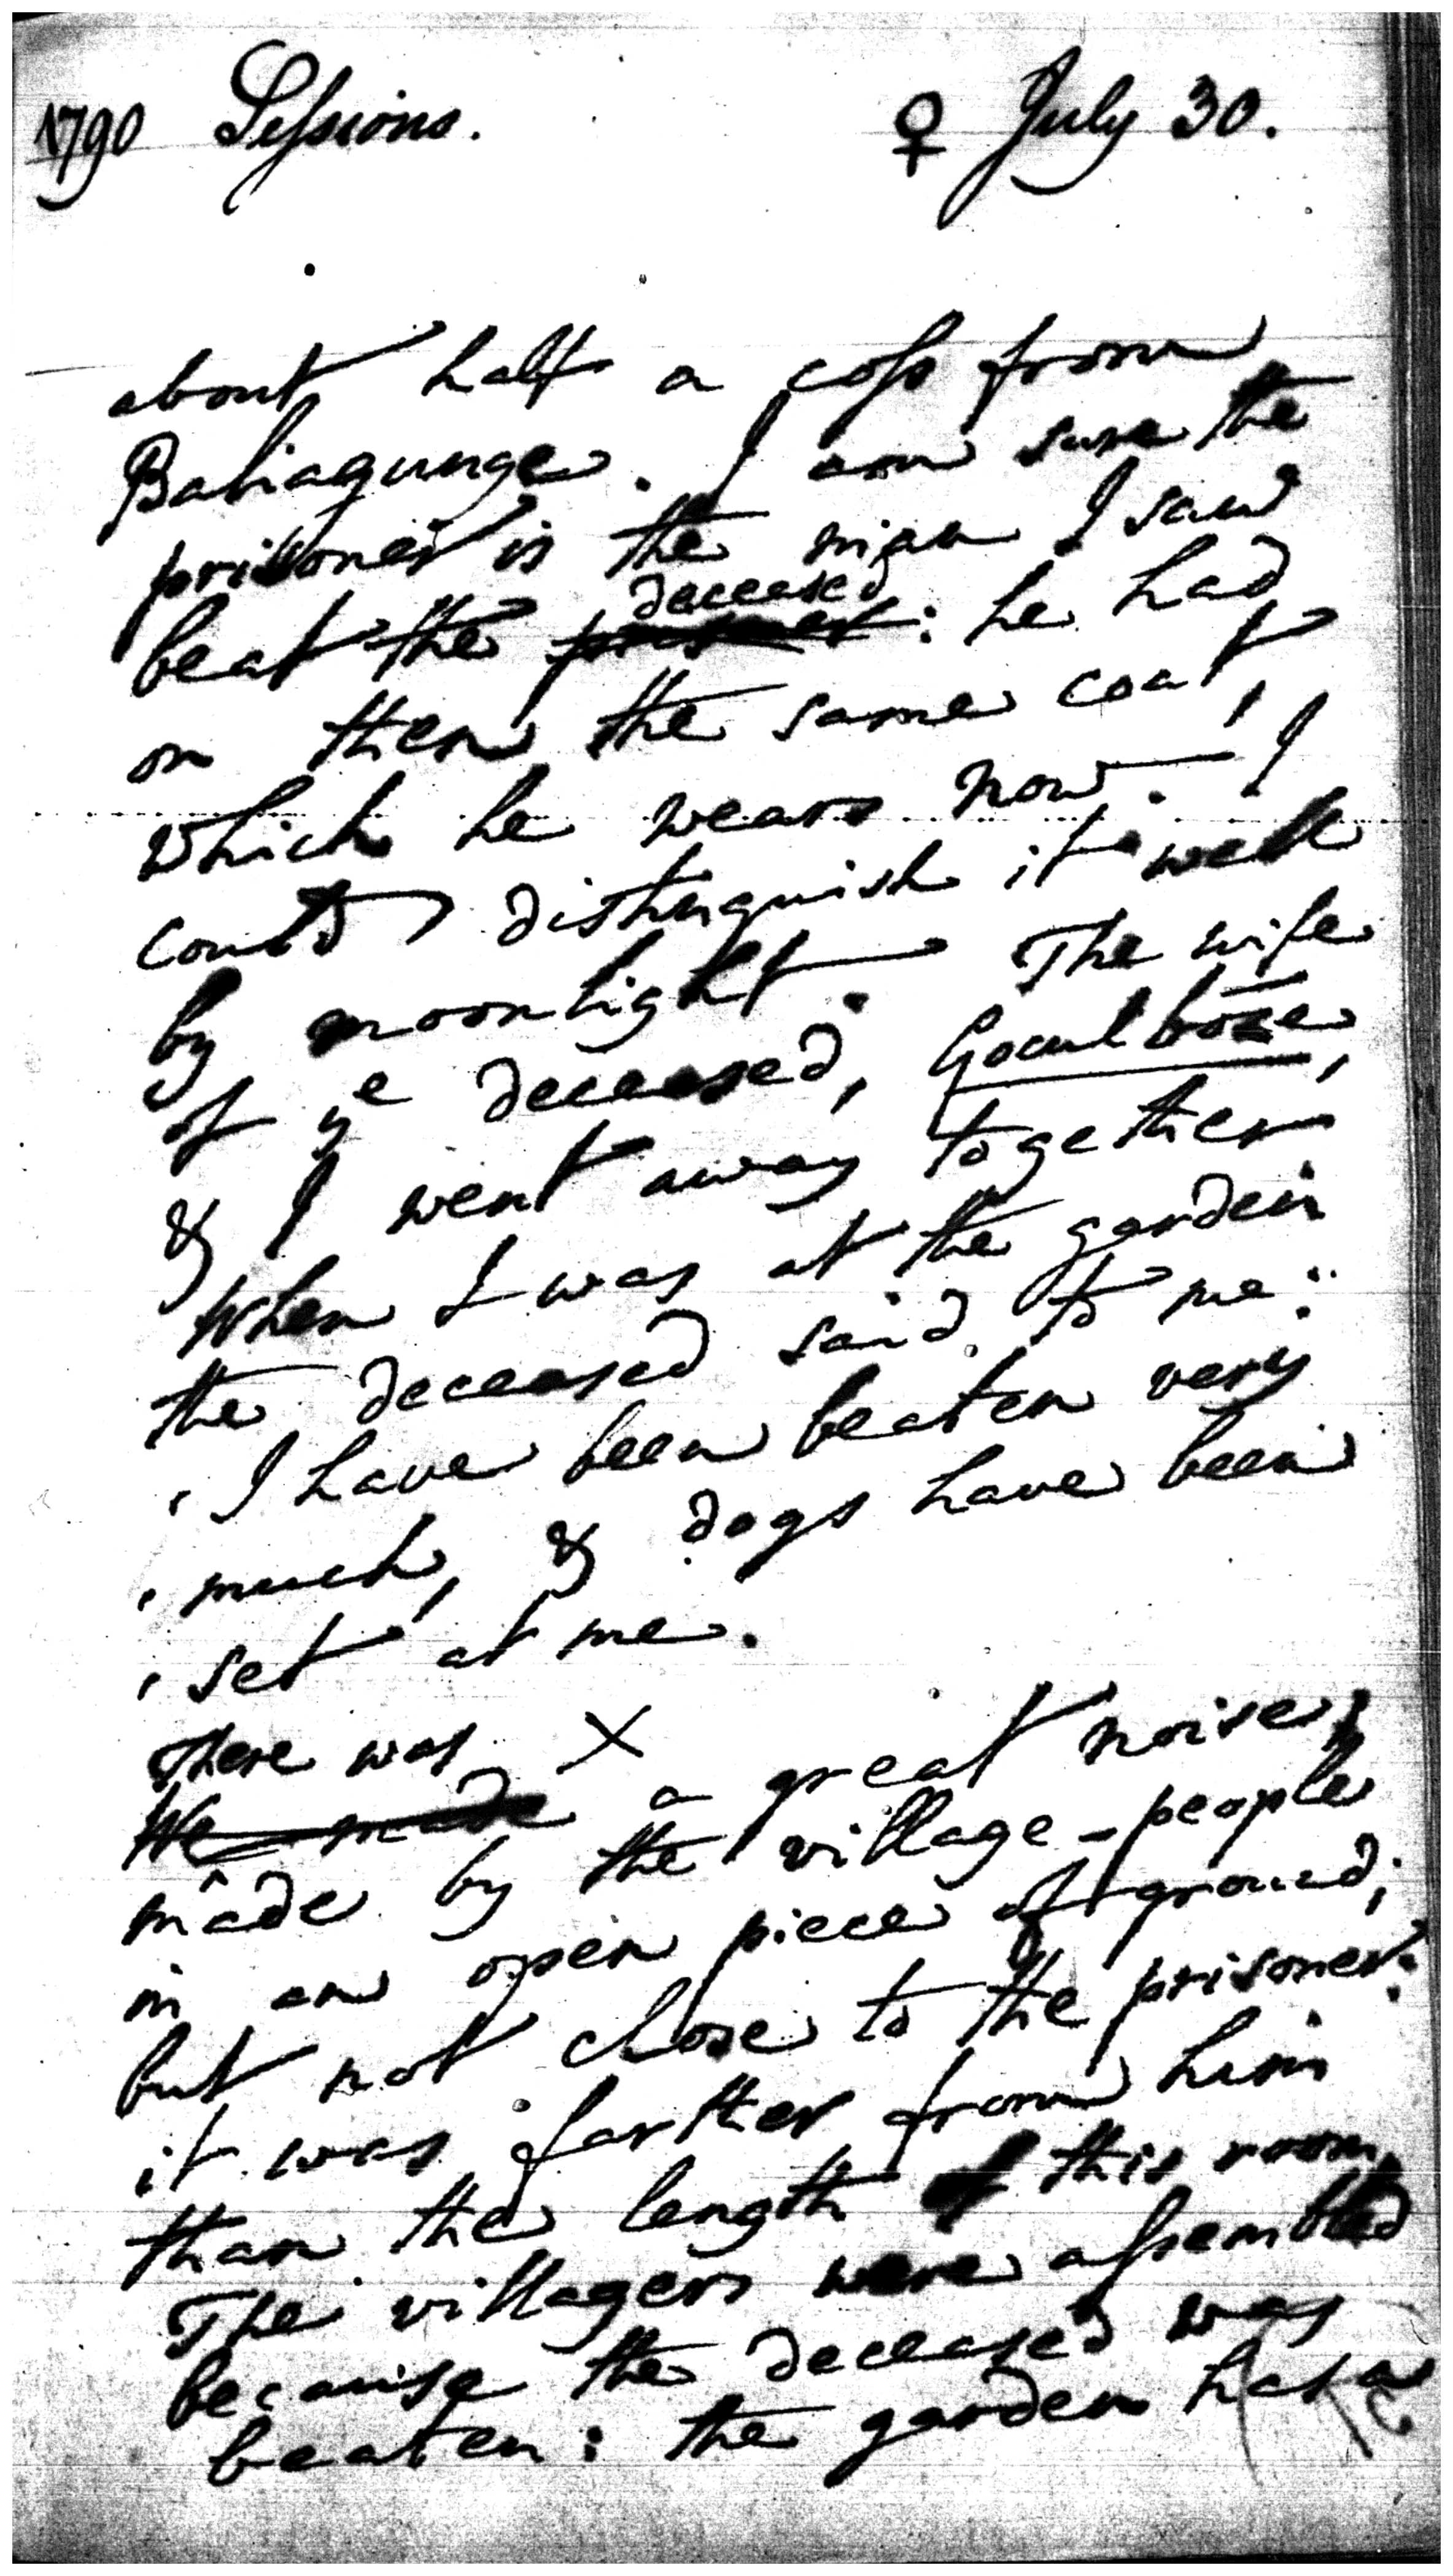 1790 Sessions. ♀ July 30.
about half a coss from
Baliagunge. I am sure the
prisoner is the man I saw
beat the prisoner deceased: he had
on then the same coat,
which he wears now. I
could distinguish it well
by moonlight. The wife
of ye deceased, Gocul bose,
& I went away together.
When I was at the garden
the deceased said to me:
‘I have been beaten very
‘much, & dogs have been
‘set at me.
There was X
We made a great noise,
made by the village-people
in an open piece of ground;
but not close to the prisoner:
it was farther from him
than the length of this room.
The villagers were assembled
because the deceased was
beaten: the garden has a